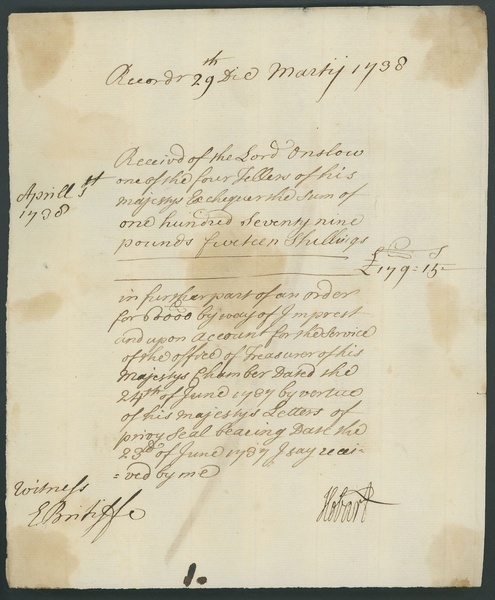 Recordr 29th Die Martij 1738
Aprill 5th
1738
Receivd of the Lord Onslow
one of the four Tellers of his
Majestys Exchequer the Sum of
one hundred Seventy nine
pounds fiveteen Shillings
£179=15-
in further part of an order
for 6000 by way of Imprest
and upon Account for the Service
of the office of Treasurer of his
Majestys Chamber Dated the
24th of June 1737 by vertue
of his Majestys Letters of
privy Seal bearing Date the
23d of June 1737 I say recei=
=ved by me
Witness
E Britiffe
Hobart